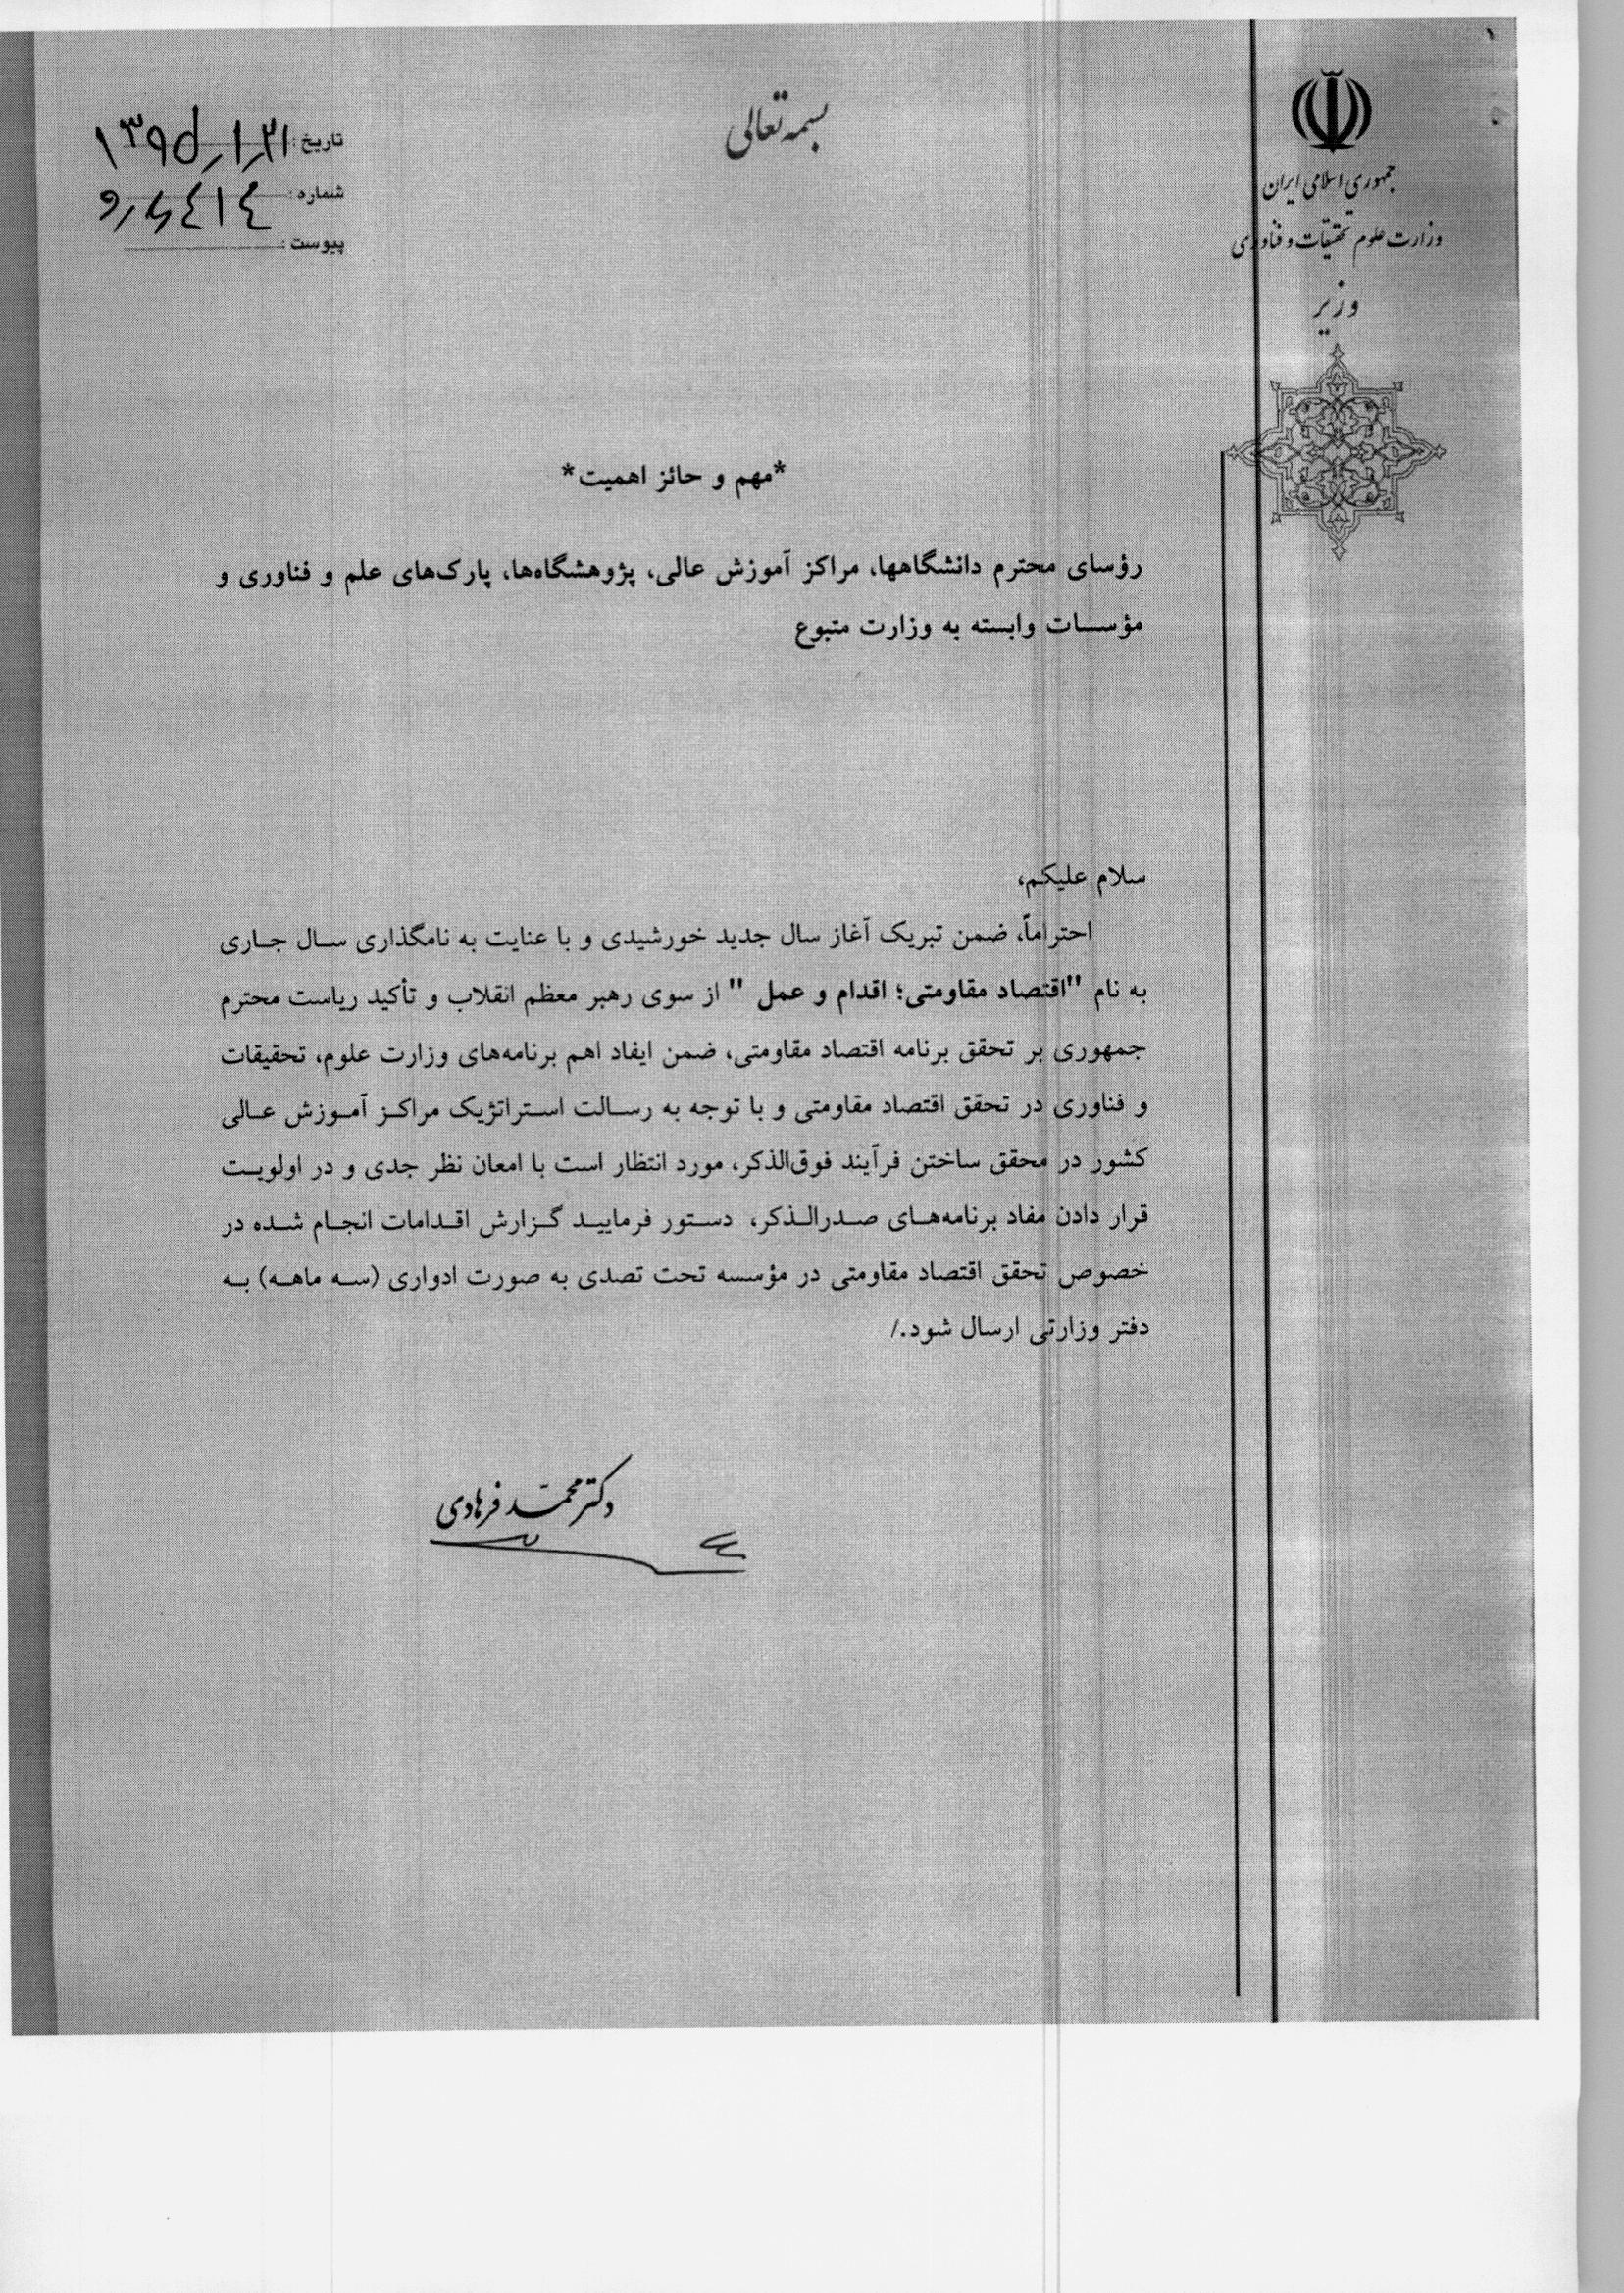 بسمه تعالی
جمهوری اسلامی ایران
وزارت علوم تحقیقات و فناوری
وزیر
تاریخ: ۱۳۹۵/۱/۲۱
شماره:
پیوست:
*مهم و حائز اهمیت*
رؤسای محترم دانشگاهها، مراکز آموزش عالی، پژوهشگاه‌ها، پارک‌های علم و فناوری و
مؤسسات وابسته به وزارت متبوع
سلام علیکم،
احتراماً، ضمن تبریک آغاز سال جدید خورشیدی و با عنایت به نامگذاری سال جاری
به نام "اقتصاد مقاومتی؛ اقدام و عمل " از سوی رهبر معظم انقلاب و تأکید ریاست محترم
جمهوری بر تحقق برنامه اقتصاد مقاومتی، ضمن ایفاد اهم برنامه‌های وزارت علوم، تحقیقات
و فناوری در تحقق اقتصاد مقاومتی و با توجه به رسالت استراتژیک مراکز آموزش عالی
کشور در محقق ساختن فرآیند فوق‌الذکر، مورد انتظار است با امعان نظر جدی و در اولویت
قرار دادن مفاد برنامه‌های صدرالذکر، دستور فرمایید گزارش اقدامات انجام شده در
خصوص تحقق اقتصاد مقاومتی در مؤسسه تحت تصدی به صورت ادواری (سه ماهه) به
دفتر وزارتی ارسال شود./
دکتر محمّد فرهادی